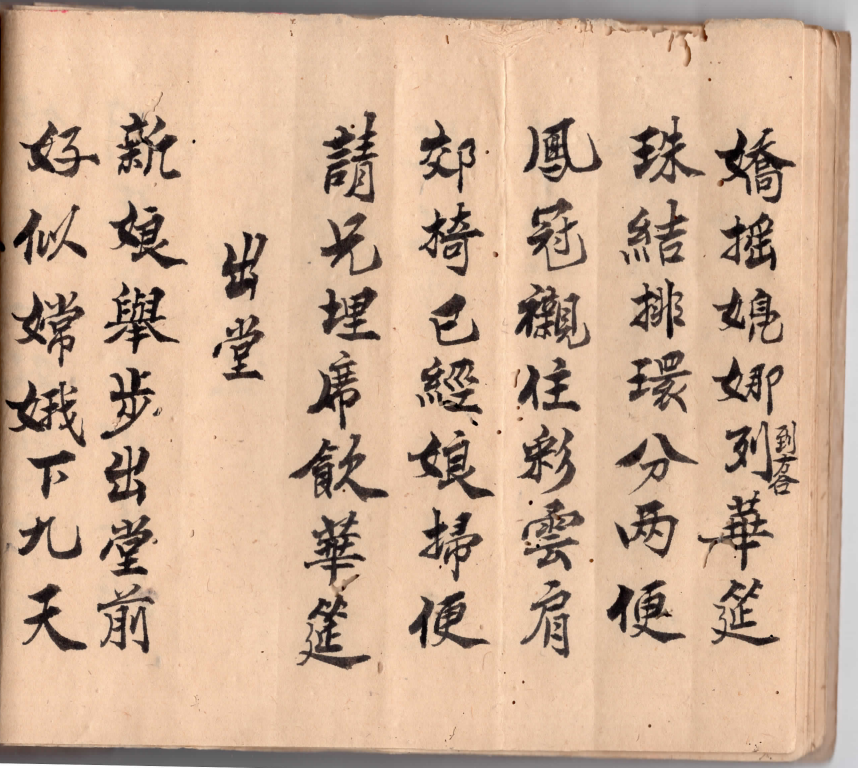 嬌搖娜列華筵
到
珠結排環分两便
鳳冠襯住彩雲肩
郊椅已經娘掃便
請兄埋席飲華筵
出堂
新娘舉步出堂前
好似嫦娥下九天